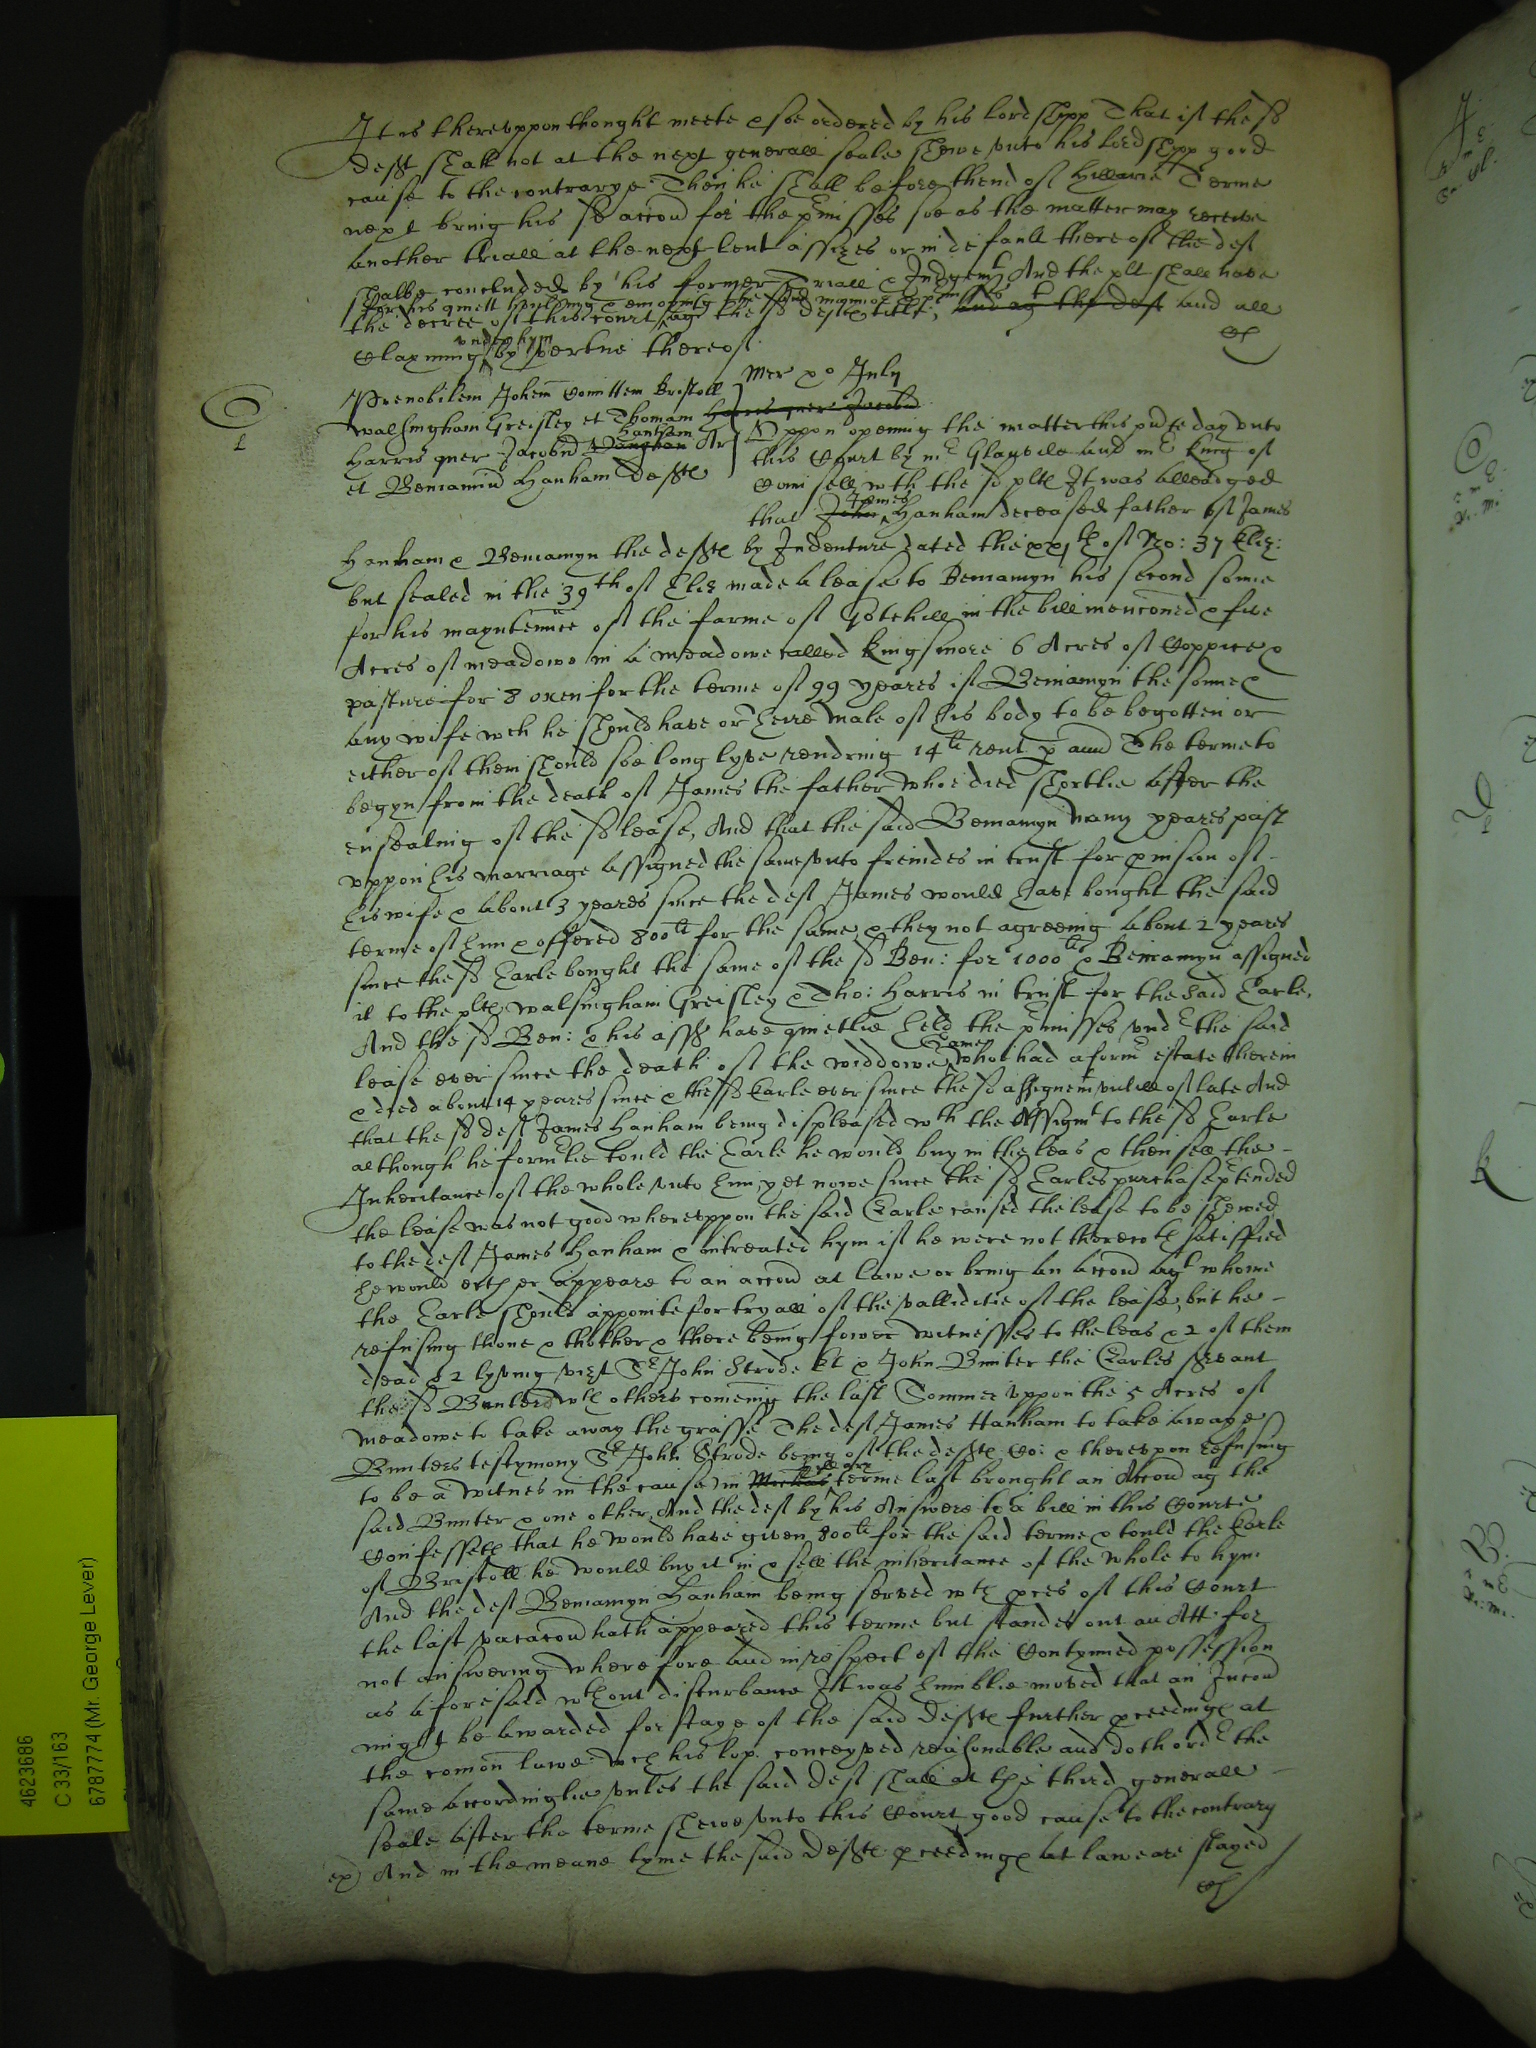 It is thereuppon thought meete & soe ordered by his lordshipp That if the sd
deft shall not at the next generall seale shewe unto his lordshipp good
cause to the contrarye Then he shall before thend of Hillarie Terme
next bring his sd accon for the pmisses soe as the matter may receive
another triall at the next lent assizes or in default thereof the deft
shalbe concluded by his former Triall & Judgemt And the plt shall have
for his quiett houlding & enioying the sd
the decree of this court agt the sd deft & title, and agt the deft and all
under hym
Clayming by vertue thereof
Mer xo July
Prenobilem Johem Comittem Bristoll
Walsingham Greisley et Thomam Harris quer Jacobu
Hanham
Harris quer Jacobu Vaughan Ar
et Beniaminu Hanham defftes
Uppon opening the matter this pnte day unto
this Court by mr Glanvile and mr King of
Counsell wth the sd plts It was alleadged
James
that John Hanham deceased father of James
Hanham & Beniamyn the deftes by Indenture dated the xxjth of No: 37 Eliz:
but sealed in the 39th of Eliz made a lease to Beniamyn his second sonne
for his mayntennce of the farme of Gotehill in the bill menconed & five
Acres of meadowe in a meadowe called Kingsmore 6 Acres of Coppice &
pasture for 8 oxen for the terme of 99 yeares if Beniamyn the sonne &
any wife wch he should have or heire male of his body to be begotten or
either of them should soe long lyve rendring 14li rent p annu The terme to
begyn from the death of James the father whoe died shortlie after the
ensealing of the sd lease, And that the said Beniamyn many yeares past
uppon his marriage assigned the same unto freindes in trust for pvision of
his wife & about 3 yeares since the deft James would have bought the said
terme of him & offered 800li for the same, & they not agreeing about 2 yeares
since the sd Earle bought the same of the sd Ben: for 1000li & Beniamyn assigned
it to the plts Walsingham Greisley & Tho: Harris in trust for the said Earle,
And the sd Ben: & his asss have quietlie held the pmisses undr the said
Jame
lease ever since the death of the widdowe whoe had a formr estate therein
& died about 14 yeares since & the sd Earle ever since the sd assignemt untill of late And
that the sd deft James Hanham being displeased wth the Assignmt to the sd Earle
although he formrlie tould the Earle he would buy in the leas & then sell the
Inheritance of the whole unto him, yet nowe since the sd Earles purchase ptended
the lease was not good whereuppon the said Earle caused the lease to be shewed
to the deft James Hanham & intreated hym if he were not therewth satisffied
he would eyther appeare to an accon at lawe or bring an accon agt whome
the Earle should appointe for tryall of the valliditie of the lease, but he
refusing thone & thother & there being fower witnesses to the leas & 2 of them
dead & 2 lyving vizt Sr John Strode kt & John Bunter the Earles servant
the sd Bunter wth others comeing the last Sommer uppon the 5 Acres of
meadowe to take away the grasse The deft James Hanham to take awaye
Bunters testymony Sr John Strode being of the deftes Co: & thereupon refusing
Hillary
to be a witnes in the cause, in Michas terme last brought an Accon agt the
said Bunter & one other, And the deft by his Answere to a bill in this Courte
Confesseth that he would have given 800li for the said terme & tould the Earle
of Bristoll he would buy it in & sell the inheritance of the whole to hym
And the deft Beniamyn Hanham being served wth pces of this Court
the last vacacon hath appeared this terme but standes out an Att: for
not answering wherefore and in respect of the Contynued possession
as aforesaid wthout disturbance It was humblie moved that an Iniucon
might be awarded for staye of the said Deftes further pceedinges at
the comon lawe wch his lop. conceyved reasonable and doth ordr the
same accordinglie unles the said deft shall at the third generall
seale after the terme shewe unto this Court good cause to the contrary
ex) And in the meane tyme the said deftes pceedinges at lawe are stayed
4623686
C 33/163
6787774 (Mr. George Lever)